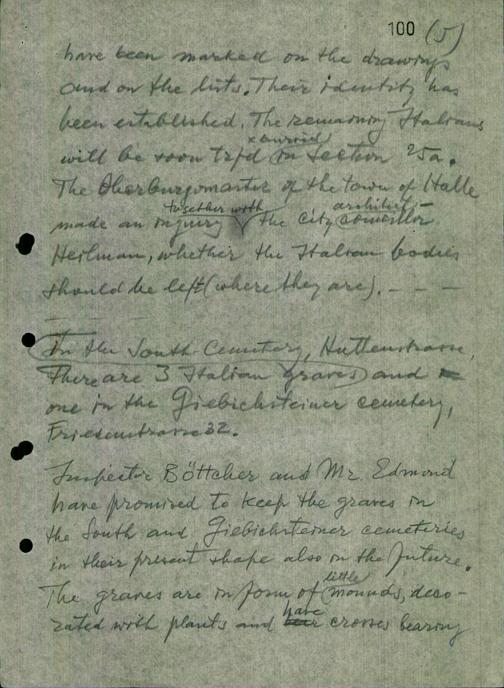 100 (5)
have been marked on the drawings
and on the lists. Their identity has
been established. The remaining Italians
x buried
will be soon trfd in Section 25a.
The Oberburgomaster of the town of Halle
together with architect-
made an inquiry the city councillor
Heilman, whether the Italian bodies
should be left (where they are). - - -
In the South Cemetery, Huttenstrasse,
There are 3 Italian graves) and
one in the Giebichsteiner cemetery,
Friesenstrasse 32.
Inspector Böttcher and Mr. Edmond
have promised to keep the graves in
the South and Giebichsteiner cemeteries
in their present shape also in the future.
little
The graves are in form of mounds, deco-
have
rated with plants and crosses bearing